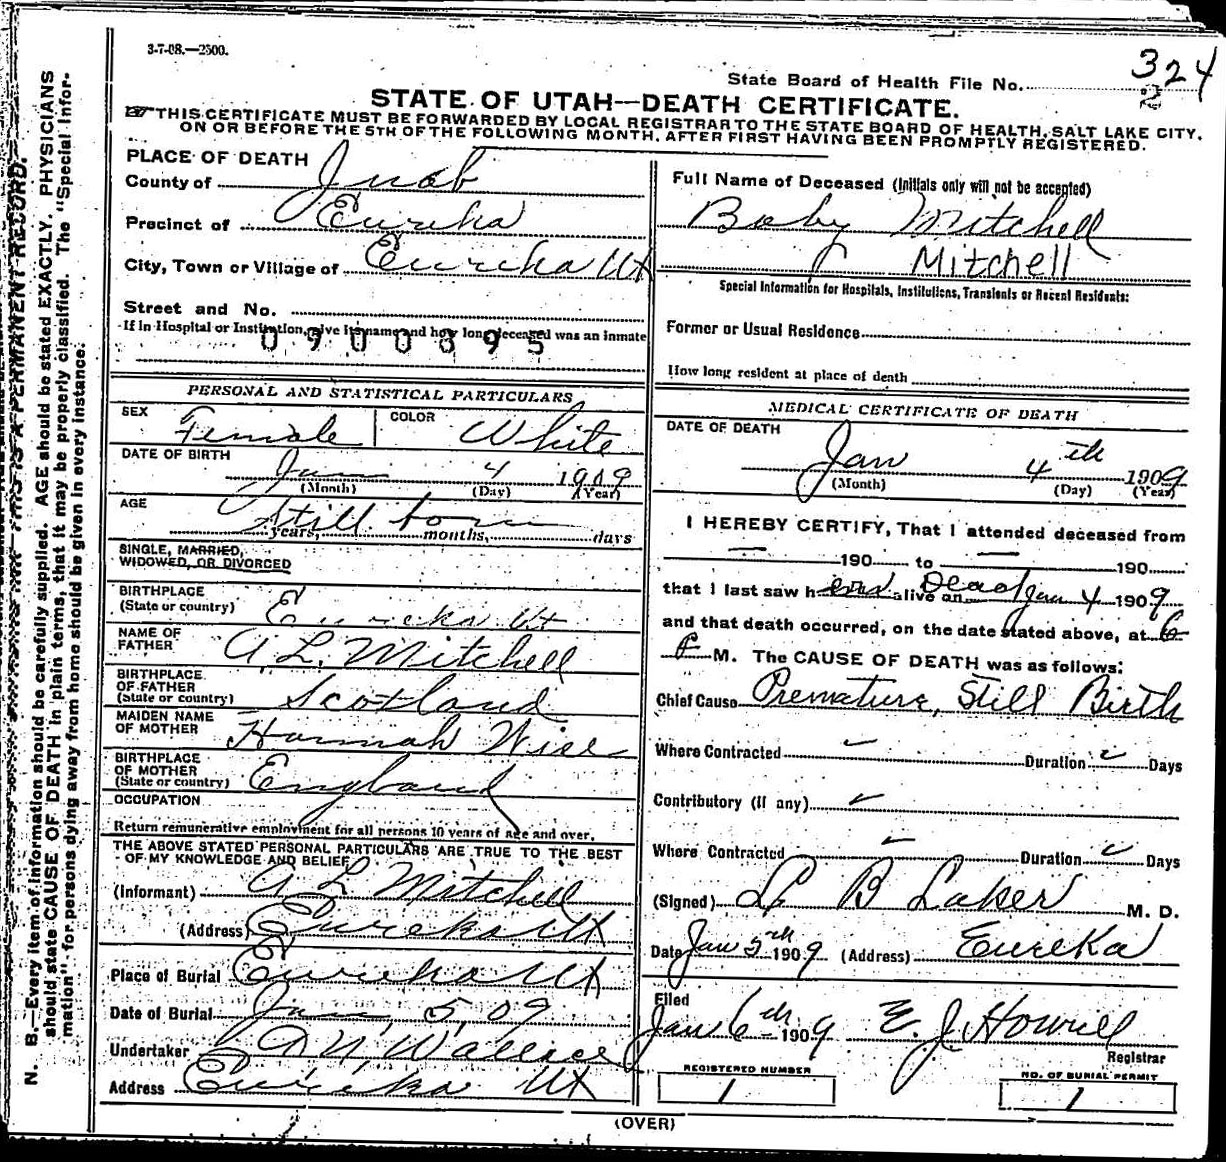 3-7-08.—2500.
State Board of Health File No. 324
STATE OF UTAH—DEATH CERTIFICATE.
THIS CERTIFICATE MUST BE FORWARDED BY LOCAL REGISTRAR TO THE STATE BOARD OF HEALTH, SALT LAKE CITY,
ON OR BEFORE THE 5TH OF THE FOLLOWING MONTH, AFTER FIRST HAVING BEEN PROMPTLY REGISTERED.
PLACE OF DEATH
County of Juab
Precinct of Eureka
City, Town or Village of Eureka Ut
Street and No.
If in Hospital or Institution, give its name and how long deceased was an inmate
0900395
PERSONAL AND STATISTICAL PARTICULARS
SEX Female COLOR White
DATE OF BIRTH
Jan 4 1909
(Month) (Day) (Year)
AGE Still born
years, months, days
SINGLE, MARRIED,
WIDOWED, OR DIVORCED
BIRTHPLACE
(State or country) Eureka Ut
NAME OF
FATHER A. L. Mitchell
BIRTHPLACE
OF FATHER
(State or country) Scotland
MAIDEN NAME
OF MOTHER Hannah Wise
BIRTHPLACE
OF MOTHER
(State or country) England
OCCUPATION
Return remunerative employment for all persons 10 years of age and over.
THE ABOVE STATED PERSONAL PARTICULARS ARE TRUE TO THE BEST
OF MY KNOWLEDGE AND BELIEF
(Informant) A L Mitchell
(Address) Eureka Ut
Place of Burial Eureka Ut
Date of Burial Jan, 5, 09
Undertaker Wallace
Address Eureka Ut
Full Name of Deceased (Initials only will not be accepted)
Baby Mitchell
Mitchell
Special Information for Hospitals, Institutions, Transients or Recent Residents:
Former or Usual Residence
How long resident at place of death
MEDICAL CERTIFICATE OF DEATH
DATE OF DEATH
Jan 4th 1909
(Month) (Day) (Year)
I HEREBY CERTIFY, That I attended deceased from
— 190 to — 190
that I last saw h alive on Dead Jan 4 1909
and that death occurred, on the date stated above, at 6
P M. The CAUSE OF DEATH was as follows:
Chief Cause Premature, Still Birth
Where Contracted Duration Days
Contributory (if any)
Where Contracted Duration Days
(Signed) B Laker M. D.
Date Jan 5th 1909 (Address) Eureka
Filed
Jan 6th 1909 E. J. Howell
Registrar
REGISTERED NUMBER
1
NO. OF BURIAL PERMIT
1
(OVER)
N. B.—Every item of information should be carefully supplied. AGE should be stated EXACTLY. PHYSICIANS
should state CAUSE OF DEATH in plain terms, that it may be properly classified. The "Special Infor-
mation" for persons dying away from home should be given in every instance.
THIS IS A PERMANENT RECORD.